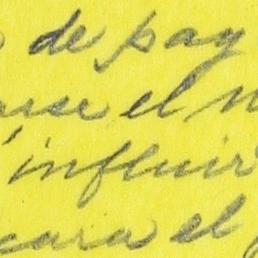 de pay
arse el
influir
cara el